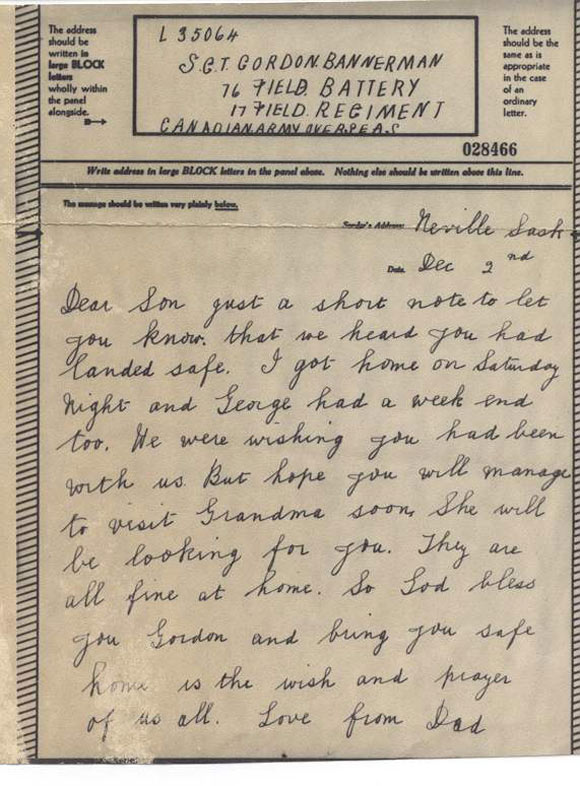 The address
should be
written in
large BLOCK
letters
wholly within
the panel
alongside.
L 35064
SGT. GORDON. BANNERMAN
76 FIELD. BATTERY
17 FIELD. REGIMENT
CANADIAN. ARMY OVERSEAS
The address
should be the
same as is
appropriate
in the case
of an
ordinary
letter.
028466
Write address in large BLOCK letters in the panel above. Nothing else should be written above this line.
The message should be written very plainly below.
Sender's Address: Neville Sask
Date. Dec 2nd
Dear Son just a short note to let
you know. that we heard you had
landed safe. I got home on Saturday
Night and George had a week end
too. We were wishing you had been
with us. But hope you will manage
to visit Grandma soon. She will
be looking for you. They are
all fine at home. So God bless
you Gordon and bring you safe
home is the wish and prayer
of us all. Love from Dad